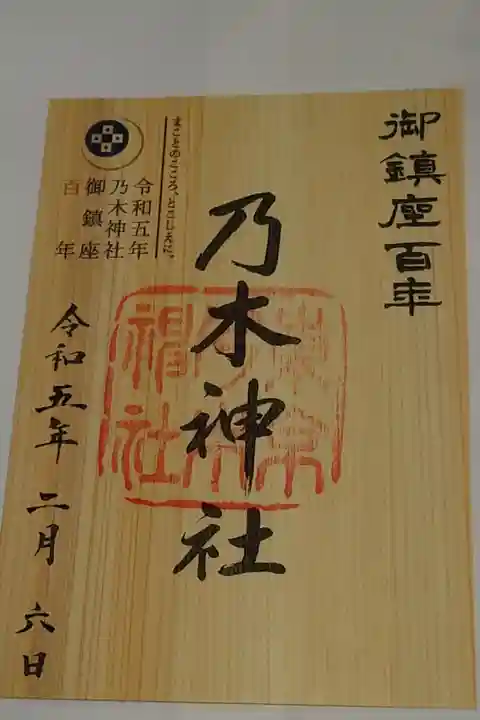 御鎮座百年
乃木神社
まことのこころ、とこしえに。
令和五年
乃木神社
御鎮座
百年
令和五年 二月 六日